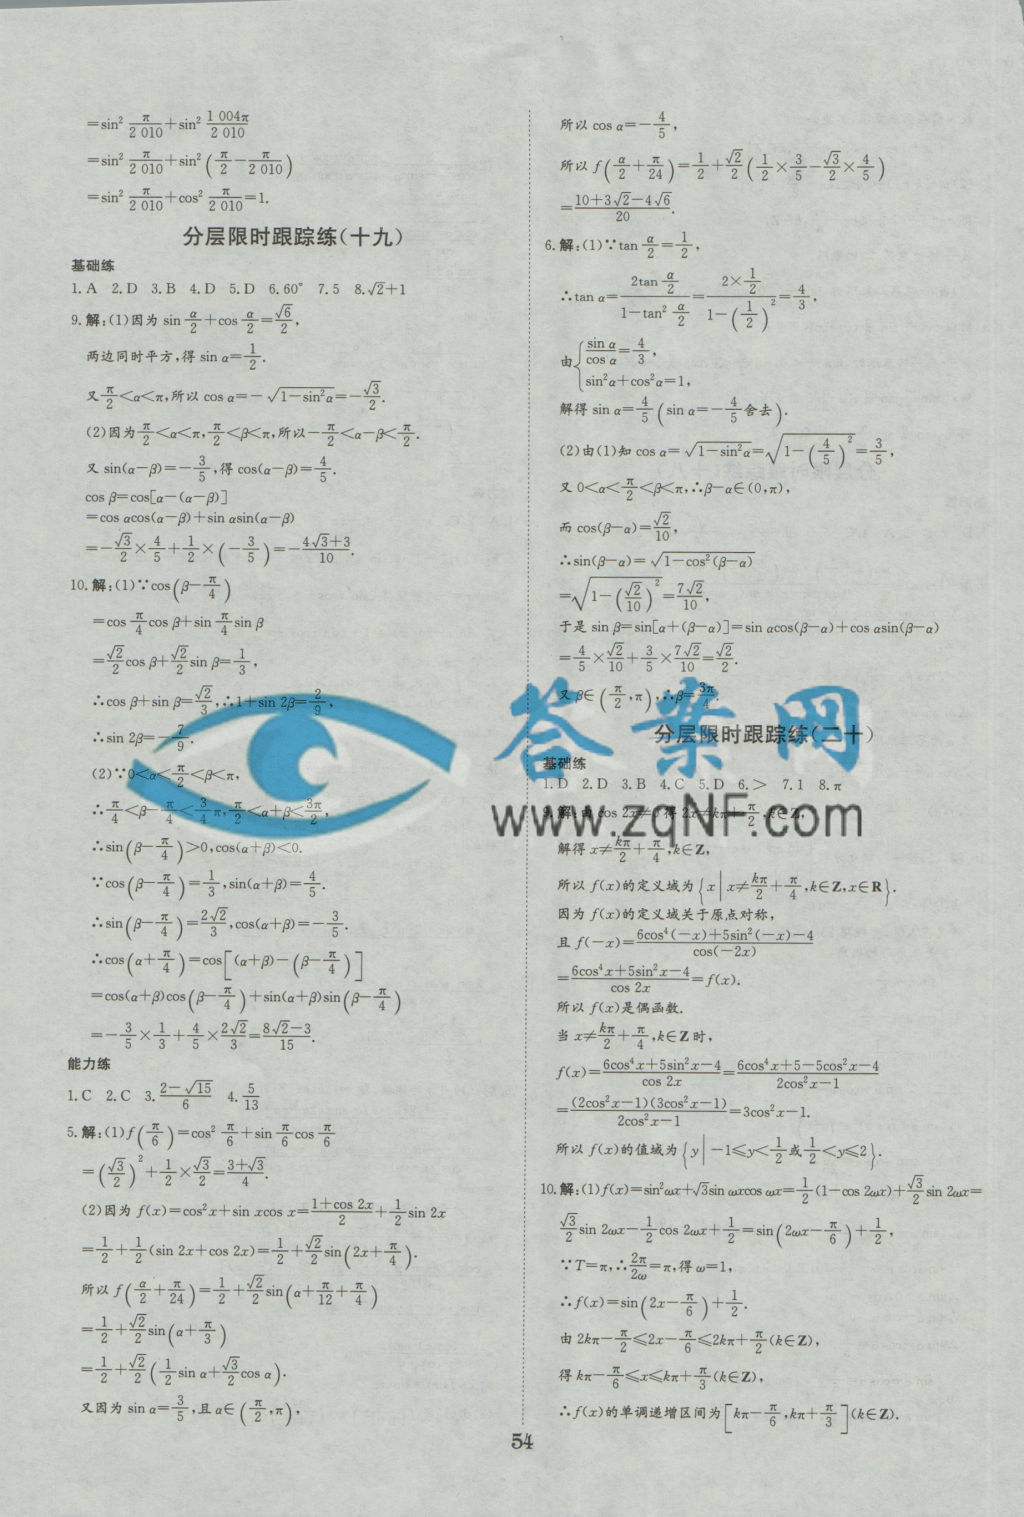 =sin² π/2 010+sin² 1 004π/2 010
=sin² π/2 010+sin²(π/2-π/2 010)
=sin² π/2 010+cos² π/2 010=1.
分层限时跟踪练(十九)
基础练
1.A 2.D 3.B 4.D 5.D 6.60° 7.5 8.√2+1
9.解:(1)因为 sin α/2+cos α/2=√6/2,
两边同时平方,得 sin α=1/2.
又π/2<α<π,所以 cos α=-√(1-sin²α)=-√3/2.
(2)因为π/2<α<π,π/2<β<π,所以-π/2<α-β<π/2.
又 sin(α-β)=-3/5,得 cos(α-β)=4/5.
cos β=cos[α-(α-β)]
=cos αcos(α-β)+sin αsin(α-β)
=-√3/2×4/5+1/2×(-3/5)=-(4√3+3)/10.
10.解:(1)∵cos(β-π/4)
=cos π/4 cos β+sin π/4 sin β
=√2/2 cos β+√2/2 sin β=1/3,
∴cos β+sin β=√2/3,∴1+sin 2β=2/9,
∴sin 2β=-7/9.
(2)∵0<α<π/2<β<π,
∴π/4<β-π/4<3/4 π,π/2<α+β<3π/2,
∴sin(β-π/4)>0,cos(α+β)<0.
∵cos(β-π/4)=1/3,sin(α+β)=4/5.
∴sin(β-π/4)=2√2/3,cos(α+β)=-3/5.
∴cos(α+π/4)=cos[(α+β)-(β-π/4)]
=cos(α+β)cos(β-π/4)+sin(α+β)sin(β-π/4)
=-3/5×1/3+4/5×2√2/3=(8√2-3)/15.
能力练
1.C 2.C 3.(2-√15)/6 4.5/13
5.解:(1)f(π/6)=cos² π/6+sin π/6 cos π/6
=(√3/2)²+1/2×√3/2=(3+√3)/4.
(2)因为 f(x)=cos²x+sin xcos x=(1+cos 2x)/2+1/2 sin 2x
=1/2+1/2(sin 2x+cos 2x)=1/2+√2/2 sin(2x+π/4).
所以 f(α/2+π/24)=1/2+√2/2 sin(α+π/12+π/4)
=1/2+√2/2 sin(α+π/3)
=1/2+√2/2(1/2 sin α+√3/2 cos α).
又因为 sin α=3/5,且 α∈(π/2,π),
所以 cos α=-4/5,
所以 f(α/2+π/24)=1/2+√2/2(1/2×3/5-√3/2×4/5)
=(10+3√2-4√6)/20.
6.解:(1)∵tan α/2=1/2,
∴tan α=2tan α/2/(1-tan² α/2)=2×1/2/(1-(1/2)²)=4/3,
由{sin α/cos α=4/3,
sin²α+cos²α=1,
解得 sin α=4/5(sin α=-4/5舍去).
(2)由(1)知 cos α=√(1-sin²α)=√(1-(4/5)²)=3/5,
又 0<α<π/2<β<π,∴β-α∈(0,π),
而 cos(β-α)=√2/10,
∴sin(β-α)=√(1-cos²(β-α))
=√(1-(√2/10)²)=7√2/10,
于是 sin β=sin[α+(β-α)]=sin αcos(β-α)+cos αsin(β-α)
=4/5×√2/10+3/5×7√2/10=√2/2.
又 β∈(π/2,π),∴β=3π/4.
分层限时跟踪练(二十)
基础练
1.D 2.D 3.B 4.C 5.D 6.> 7.1 8.π
9.解:由 cos 2x≠0 得 2x≠kπ+π/2,k∈Z,
解得 x≠kπ/2+π/4,k∈Z,
所以 f(x)的定义域为{x|x≠kπ/2+π/4,k∈Z,x∈R}.
因为 f(x)的定义域关于原点对称,
且 f(-x)=(6cos⁴(-x)+5sin²(-x)-4)/cos(-2x)
=(6cos⁴x+5sin²x-4)/cos 2x=f(x).
所以 f(x)是偶函数.
当 x≠kπ/2+π/4,k∈Z时,
f(x)=(6cos⁴x+5sin²x-4)/cos 2x=(6cos⁴x+5-5cos²x-4)/(2cos²x-1)
=(2cos²x-1)(3cos²x-1)/(2cos²x-1)=3cos²x-1.
所以 f(x)的值域为{y|-1≤y<1/2或1/2<y≤2}.
10.解:(1)f(x)=sin²ωx+√3sin ωxcos ωx=1/2(1-cos 2ωx)+√3/2 sin 2ωx=
√3/2 sin 2ωx-1/2 cos 2ωx+1/2=sin(2ωx-π/6)+1/2,
∵T=π,∴2π/2ω=π,得 ω=1,
∴f(x)=sin(2x-π/6)+1/2.
由 2kπ-π/2≤2x-π/6≤2kπ+π/2(k∈Z),
得 kπ-π/6≤x≤kπ+π/3(k∈Z),
∴f(x)的单调递增区间为[kπ-π/6,kπ+π/3](k∈Z).
答案网
www.zqNF.com
54